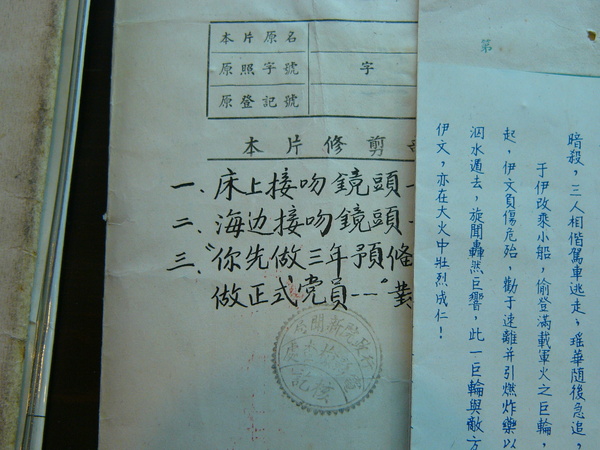 本片原名
原照字號 字
原登記號
本片修剪
一、床上接吻鏡頭-
二、海边接吻鏡頭-
三、"你先做三年預條
做正式党員--"黄
行政院新聞局
電影檢查處
檢記
第
暗殺，三人相偕駕車逃走，瑶華隨後急追，
于伊改乘小船，偷登滿載軍火之巨輪，
起，伊文負傷危殆，勸于速離并引燃炸藥以
泅水遁去，旋聞轟然巨響，此一巨輪與敵方
伊文，亦在大火中壯烈成仁！